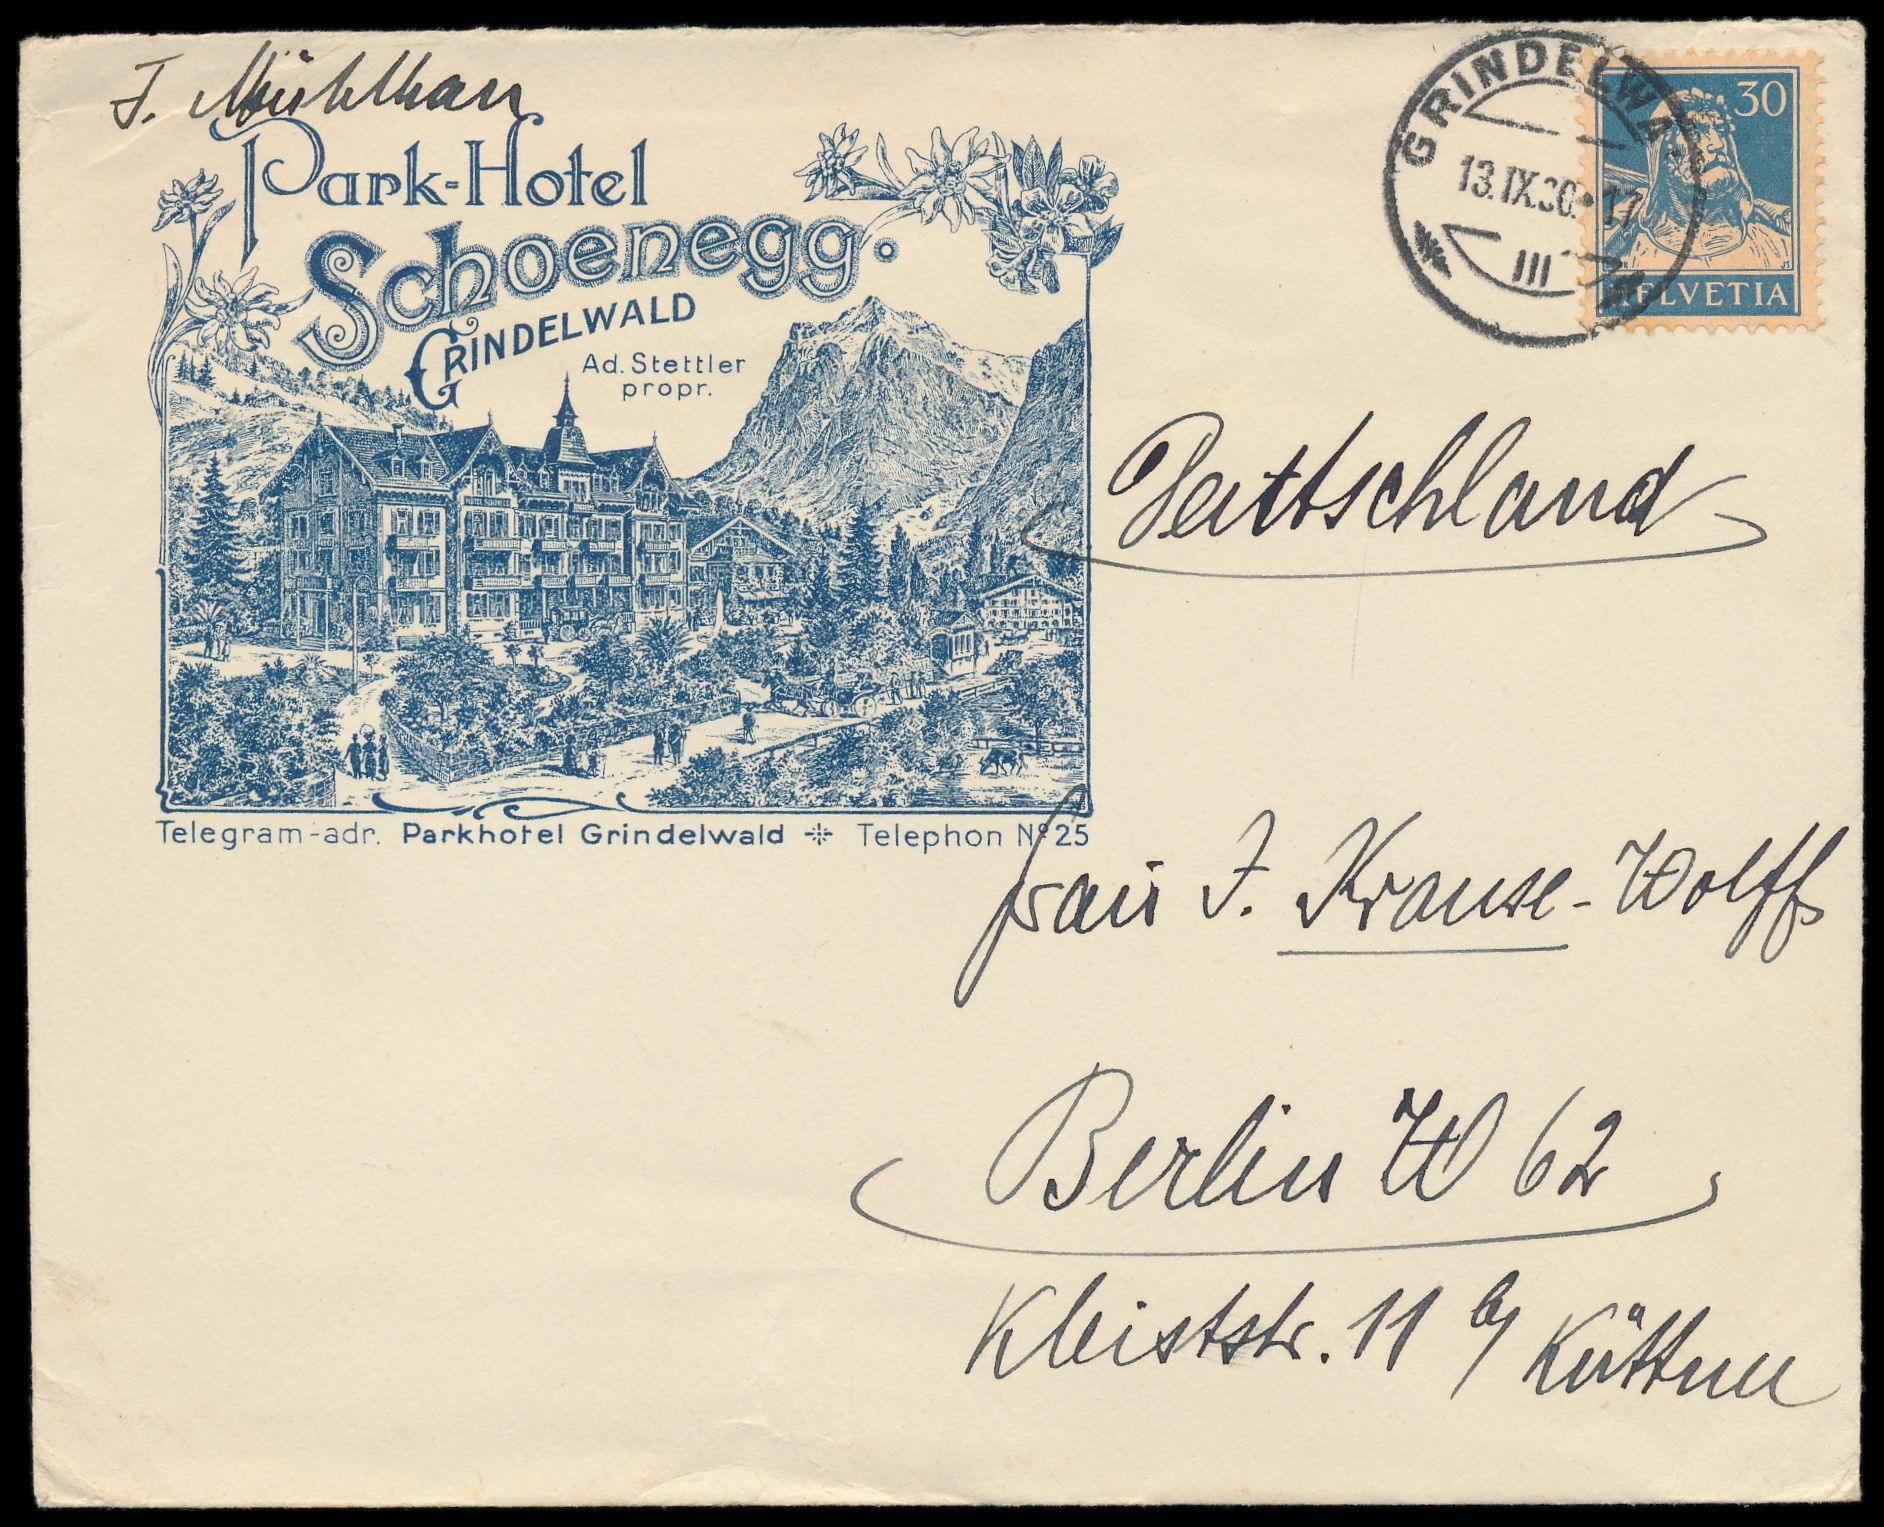 J. Mühlhan
Park-Hotel
Schoenegg.
GRINDELWALD
Ad. Stettler
propr.
Telegram-adr. Parkhotel Grindelwald ⁜ Telephon Nº 25
GRINDELWA
13.IX.30.-17
III
30
HELVETIA
Deutschland
Frau J. Krause-Wolff
Berlin W 62
Kleiststr. 11 b/ Küttner